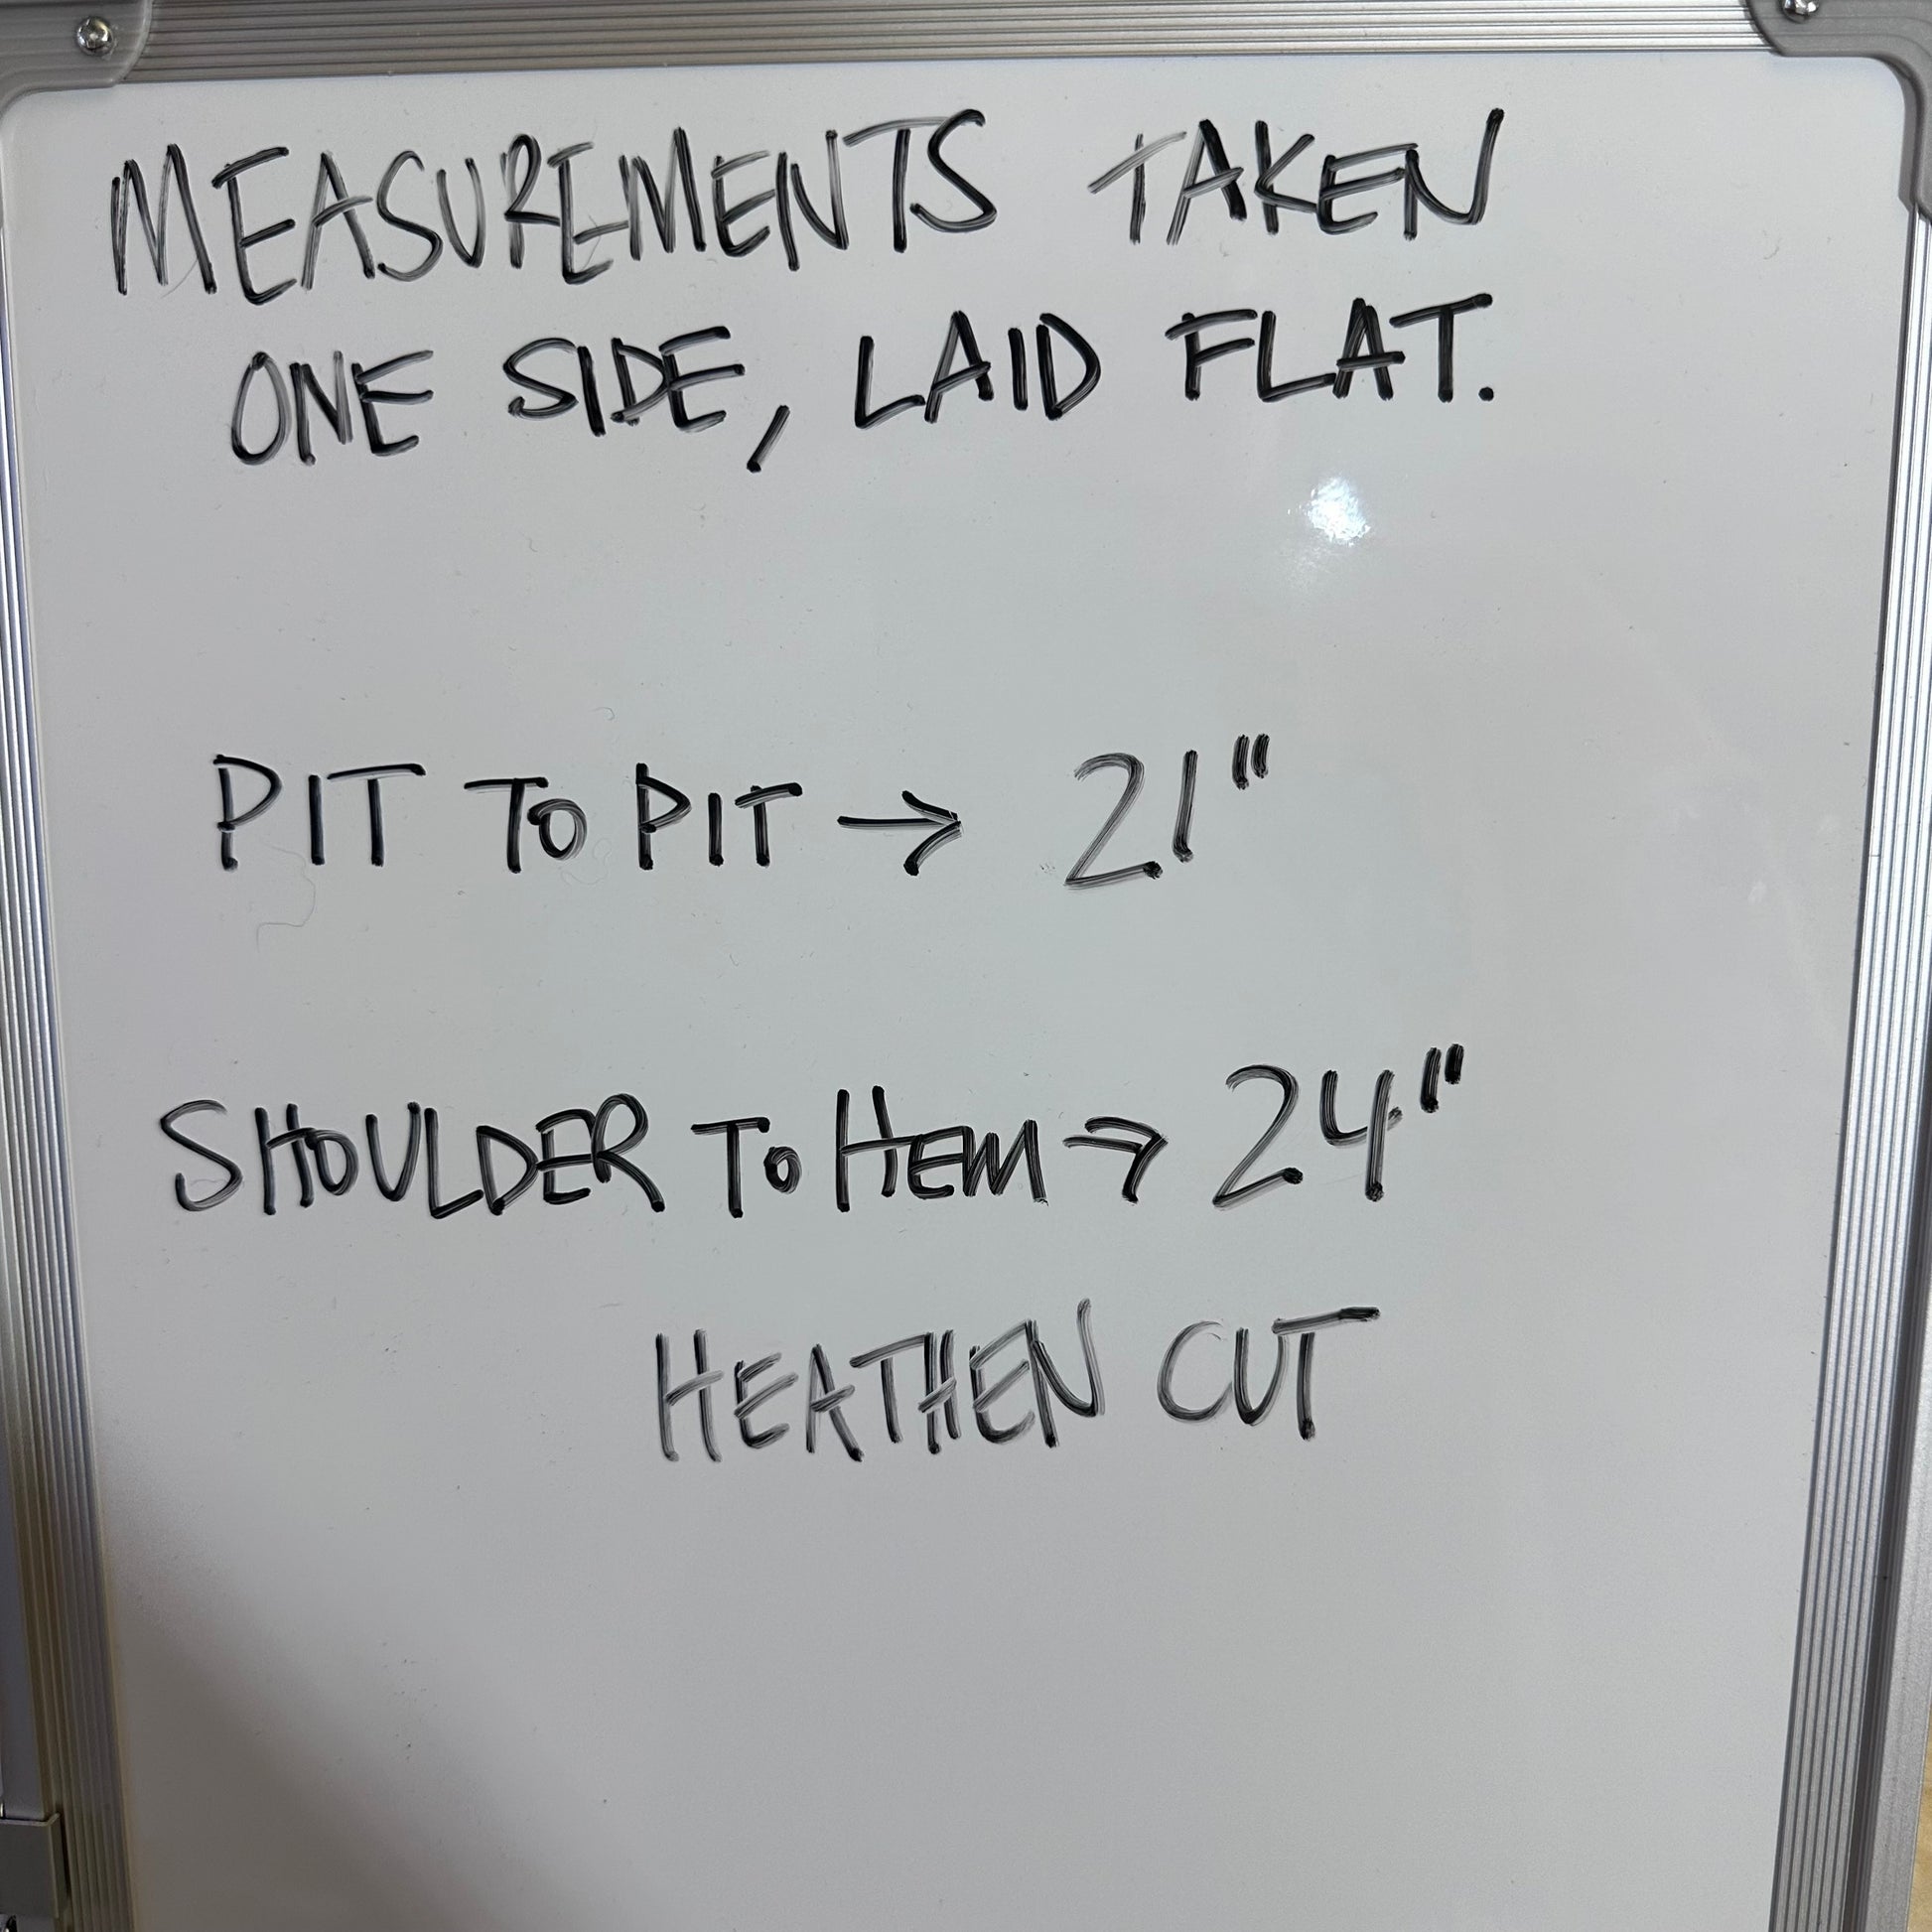 MEASUREMENTS TAKEN
ONE SIDE, LAID FLAT.
PIT TO PIT → 21"
SHOULDER TO HEM → 24"
HEATHEN CUT